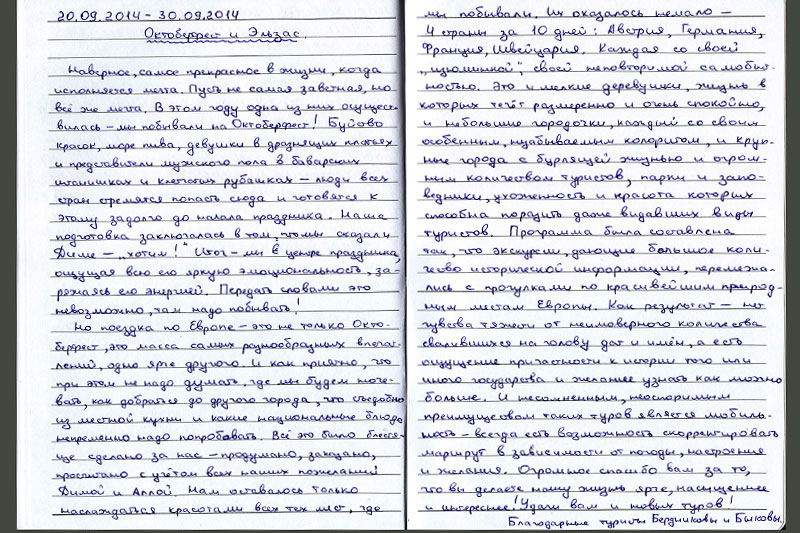 20.09.2014 - 30.09.2014
Октоберфест и Эльзас.
Наверное, самое прекрасное в жизни, когда
исполняется мечта. Пусть не самая заветная, но
всё же мечта. В этом году одна из них осущест-
вилась – мы побывали на Октоберфест! Буйство
красок, море пива, девушки в дразнящих платьях
и представители мужского пола в баварских
штанишках и клетчатых рубашках – люди всех
стран стремятся попасть сюда и готовятся к
этому задолго до начала праздника. Наша
подготовка заключалась в том, что мы сказали
Диме – „хотим!" Итог – мы в центре праздника,
ощущая всю его яркую эмоциональность, за-
ряжаясь его энергией. Передать словами это
невозможно, там надо побывать!
Но поездка по Европе – это не только Окто-
берфест, это масса самых разнообразных впечат-
лений, одно ярче другого. И как приятно, что
при этом не надо думать, где мы будем ноче-
вать, как добраться до другого города, что съедобно
из местной кухни и какие национальные блюда
непременно надо попробовать. Всё это было блестя-
ще сделано за нас – продумано, заказано,
просчитано с учётом всех наших пожеланий
Димой и Аллой. Нам оставалось только
наслаждаться красотами всех тех мест, где
мы побывали. Их оказалось немало –
4 страны за 10 дней: Австрия, Германия,
Франция, Швейцария. Каждая со своей
„изюминкой", своей неповторимой самобыт-
ностью. Это и мелкие деревушки, жизнь в
которых течёт размеренно и очень спокойно,
и небольшие городочки, каждый со своим
особенным, незабываемым колоритом, и круп-
ные города с бурлящей жизнью и огром-
ным количеством туристов, парки и запо-
ведники, ухоженность и красота которых
способна поразить даже видавших виды
туристов. Программа была составлена
так, что экскурсии, дающие большое коли-
чество исторической информации, перемежа-
лись с прогулками по красивейшим природ-
ным местам Европы. Как результат – нет
чувства тяжести от неимоверного количества
свалившихся на голову дат и имён, а есть
ощущение причастности к истории того или
иного государства и желание узнать как можно
больше. И несомненным, неоспоримым
преимуществом таких туров является мобиль-
ность – всегда есть возможность скорректировать
маршрут в зависимости от погоды, настроения
и желания. Огромное спасибо вам за то,
что вы делаете нашу жизнь ярче, насыщеннее
и интереснее! Удачи вам и новых туров!
Благодарные туристы Бердниковы и Быковы.